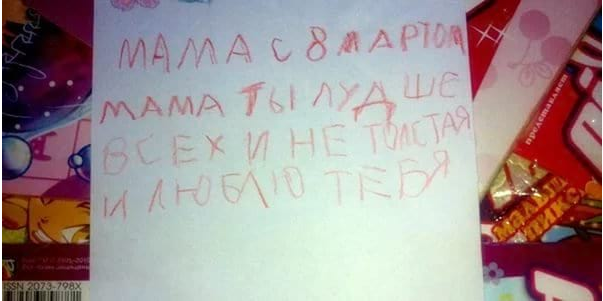 МАМА С 8 МАРТОМ
МАМА ТЫ ЛУДШЕ
ВСЕХ И НЕ ТОЛСТАЯ
И ЛЮБЛЮ ТЕБЯ
представляет
ISSN 2073-798X